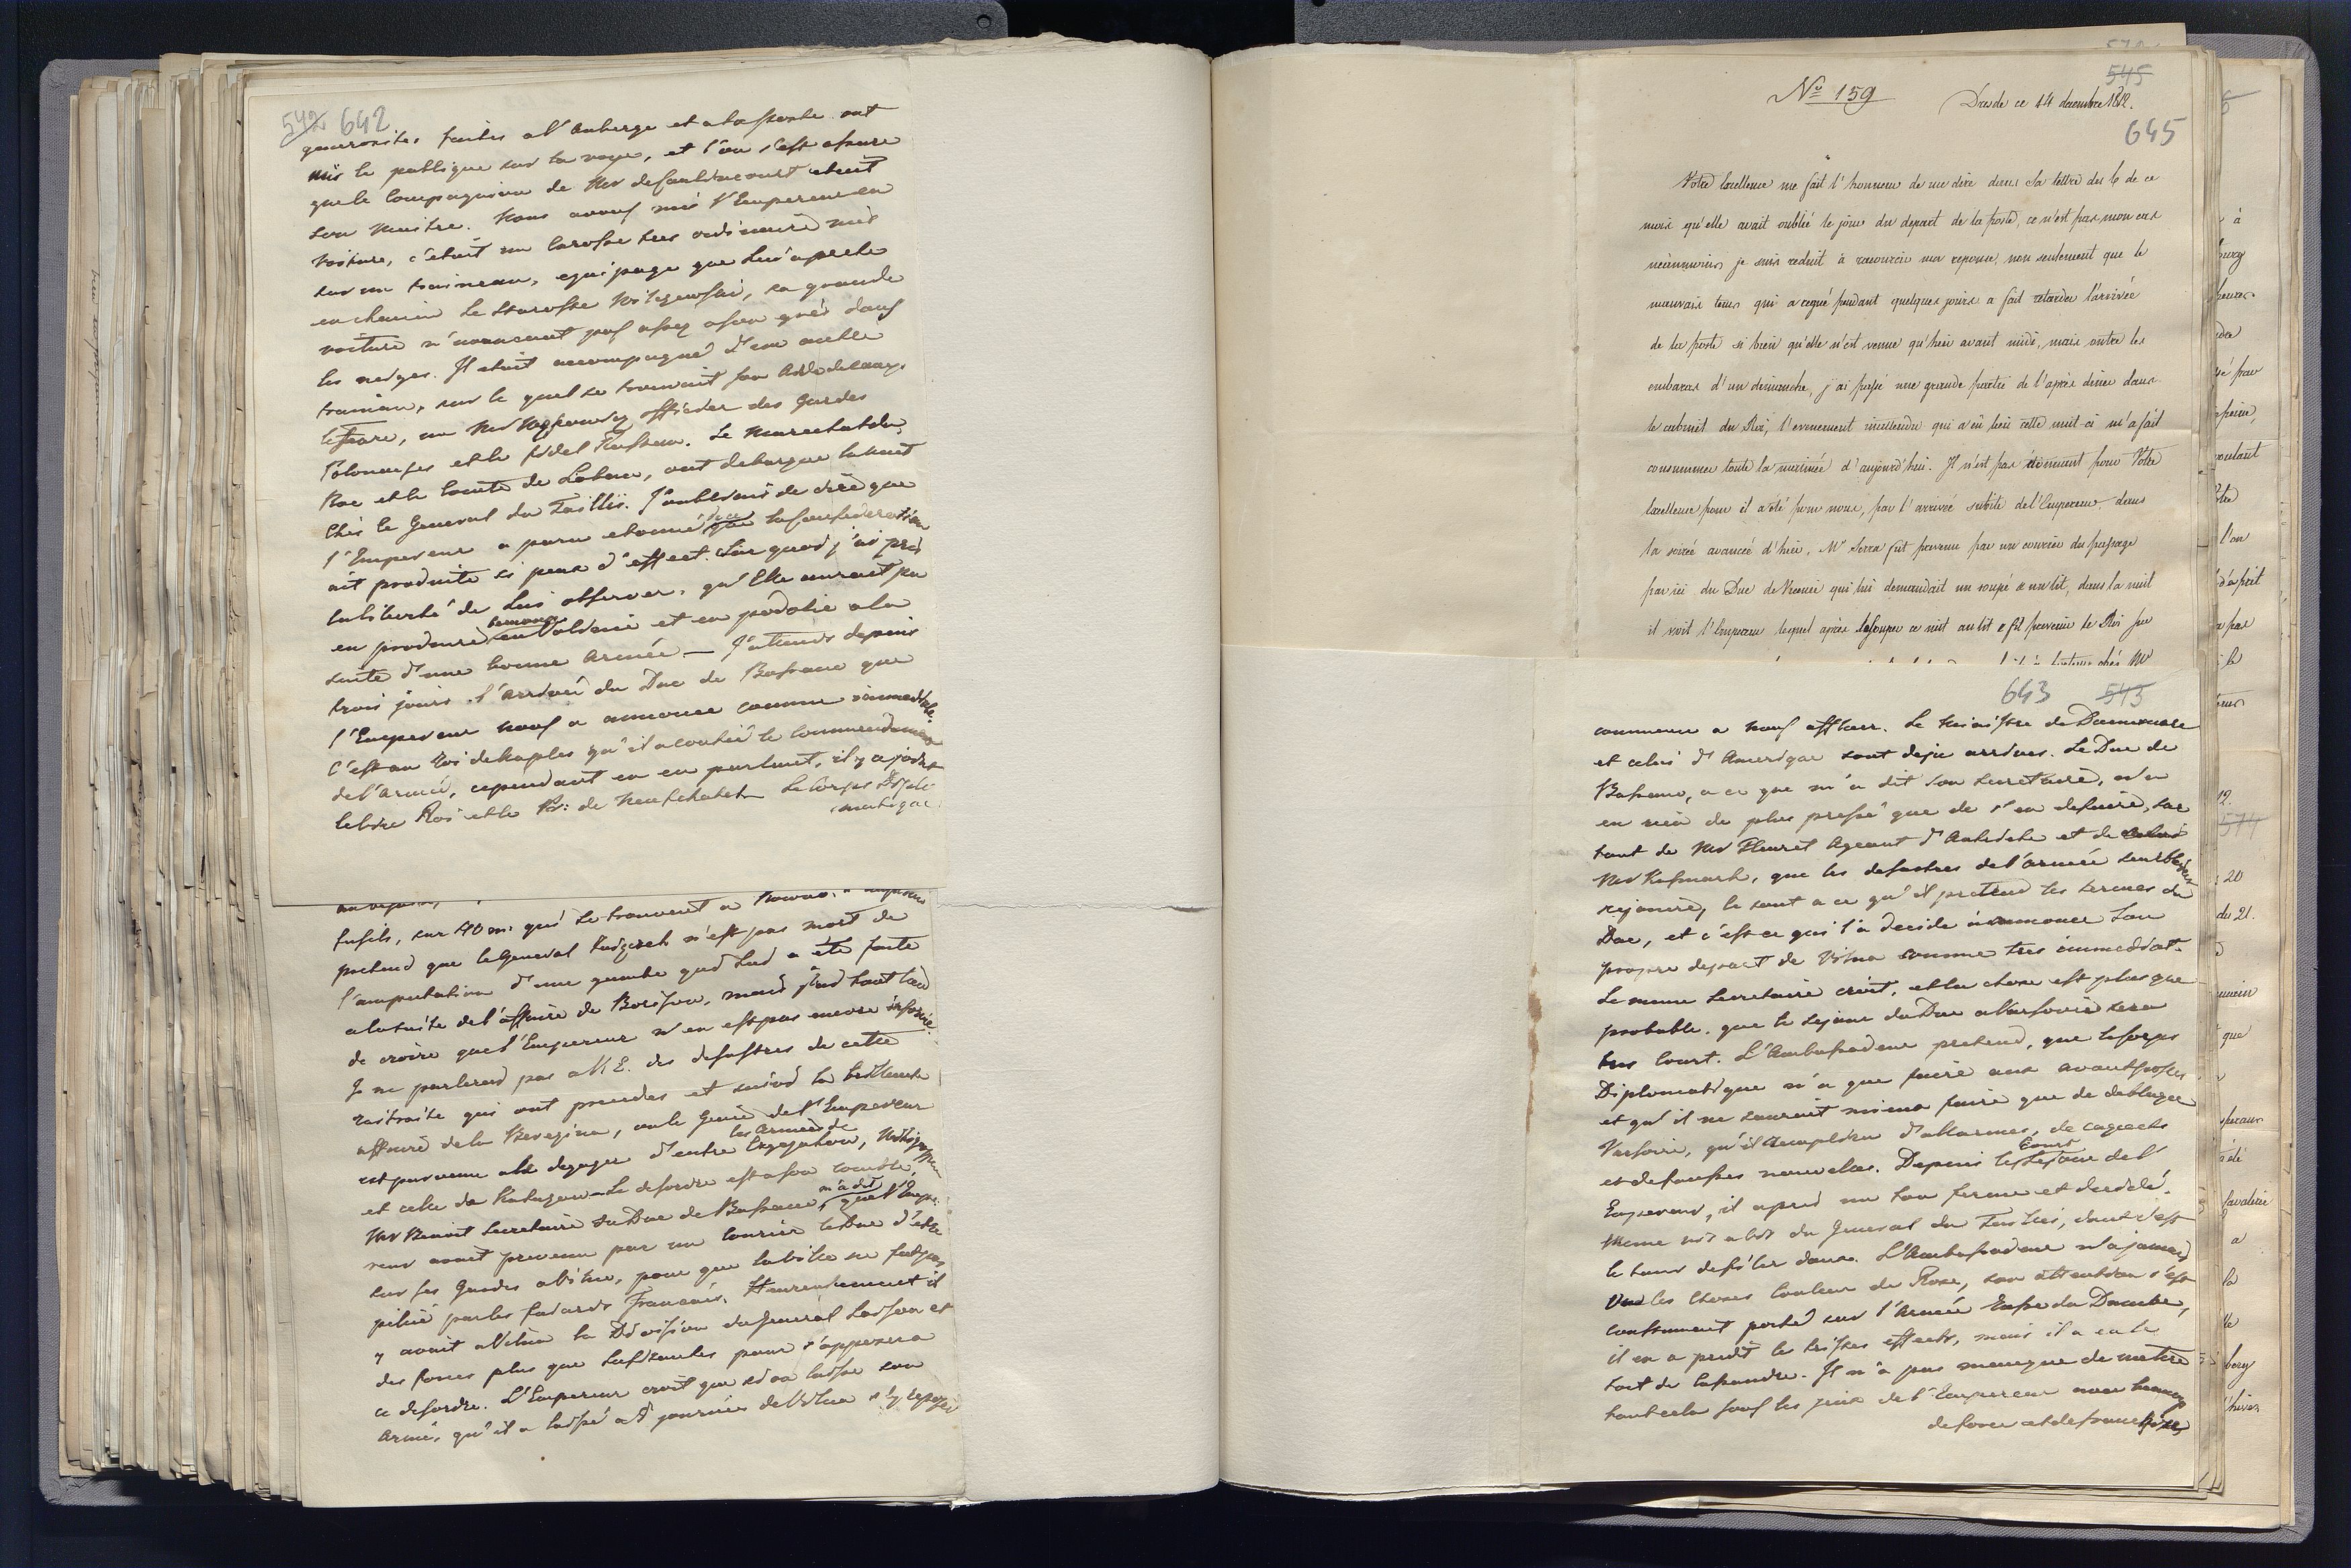 542 642
generosités faites a l'Auberge et a la poste ont
mis le publique sur la voye, et l'on s'est assure
que le Compagnion de Mr de Caulincourt etait
son Maitre. Nous avons mis l'Empereur en
voiture, c'etait un carosse tres ordinaire mis
sur un traineau, equipage que lui a preté
en chemin le Staroste , sa grande
voiture n'avancant pas assez a son gré dans
les neiges. Il etait accompagné d'un autre
traineau, sur le quel se trouvait son Aide de camp
, un Mr officier des Gardes
Polonaises et le fidel Rustan. Le Marechal du
Roc et le Comte de Lobau, ont debarque la nuit
chés le General du Taillis. J'oubliais de dire que
l'Empereur a paru etonné que la Confederation
ait produite si peux d'effect. Sur quoi j'ai pris
la liberté de lui observer, qu'Elle aurait pu
en produire beaucoup en Volhinie et en podolie a la
suite d'une bonne Armée — J'attends depuis
trois jours l'arrivée du Duc de Bassano que
l'Empereur nous a annoncé comme immediate.
C'est au Roi de Naples qu'il a confié le Commendement
de l'Armée, cependant en en parlant, il y a joint
le Roi et le Pr: de Neufchatel Le Corps Diplo
matique

fusils, sur 40 m: qui se trouvent a Kowno.
pretend que le General n'est pas mort de
l'amputation d'une jambe qui lui a été faite
a la suite de l'affaire de Borisow, mais j'ai tout lieu
de croire que l'Empereur n'en est pas encore informé.
Je ne parlerai pas a V. E. des desastres de cette
retraite qui ont precedés et suivi la brillante
affaire de la Berezina, ou le Genie de l'Empereur
est parvenu a le degager d'entre les Armées de Czyczakow, Witgenstein
et celle de Kutuzow. Le desordre est a son comble,
Mr Benoit Secretaire du Duc de Bassano, m'a dit que l'Empe-
reur avait prevenu par un courier le Duc d'etre
sur ses gardes a Vilna, pour que la ville ne fut pas
pillié par les fuiards Francais. Heureusement il
y avait a Vilna la Division du General Loison et
des forces plus que suffisantes pour s'opposer a
ce desordre. L'Empereur croit que si on laisse son
Armé, qu'il a laissé a 3 journées de Vilna s'y reposer

No 159
545
Dresde ce 14 decembre 1812.
645
Votre Excellence me fait l'honneur de me dire dans Sa lettre du 6 de ce
mois qu'elle avait oublié le jour du depart de la poste, ce n'est pas mon cas
neanmoins je suis reduit à racourcir ma reponse, non seulement que le
mauvais tems qui a regné pendant quelques jours a fait retarder l'arrivée
de la poste si bien qu'elle n'est venue qu'hier avant midi, mais outre les
embaras d'un dimanche, j'ai passé une grande partie de l'après diner dans
le cabinet du Roi, l'evenement inattendu qui a eû lieu cette nuit-ci m'a fait
consummer toute la matinée d'aujourd'hui. Il n'est pas étonnant pour Votre
Excellence pour il a été pour nous, par l'arrivée subite de l'Empereur dans
la soirée avancée d'hier, Mr Serra fut prevenu par un courier du passage
par ici du Duc de Vicence qui lui demandait un soupé & un lit, dans la nuit
il voit l'Empereur lequel après le souper ce mit au lit & fit prevenir le Roi par

643 543
commence a nous affluer. Le Ministre de Dannemark
et celui d'Amerique sont deja arrivés. Le Duc de
Bassano, a ce que m'a dit son Secretaire, n'a
eu rien de plus pressé que de s'en defaire, car
tant de Mr Fleuret Ageant d' et de
Mr , que les desastres de l'armée semblaient
rejouire, ce sont a ce qu'il pretend les termes du
Duc, et c'est ce qui l'a decidé a annoncer son
propre depart de Vilna comme tres immediat.
Le meme Secretaire croit, et la chose est plus que
probable, que le sejour du Duc a Varsovie sera
tres court. L'Ambassadeur pretend, que le Corps
Diplomatique n'a que faire aux avantpostes
et qu'il ne saurait mieux faire que de deblayer
Varsovie, qu'il remplira d'allarmes, de caquets
et de fausses nouvelles. Depuis le court Sejour de l'
Empereur, il a pris un ton ferme et decidé,
Meme vis a vis du General du Taillis, dont c'est
le tour de filer doux. L'Ambassadeur n'a jamais
Vue les choses Couleur de Rose, son attention s'est
constament porté sur l'Armée Russe du Danube,
il en a predit les tristes effects, mais il a eu le
tort de Cassandre. Il n'a pas manqué de mettre
tout cela sous les yeux de l'Empereur avec beaucoup
de force et de franchise,

574